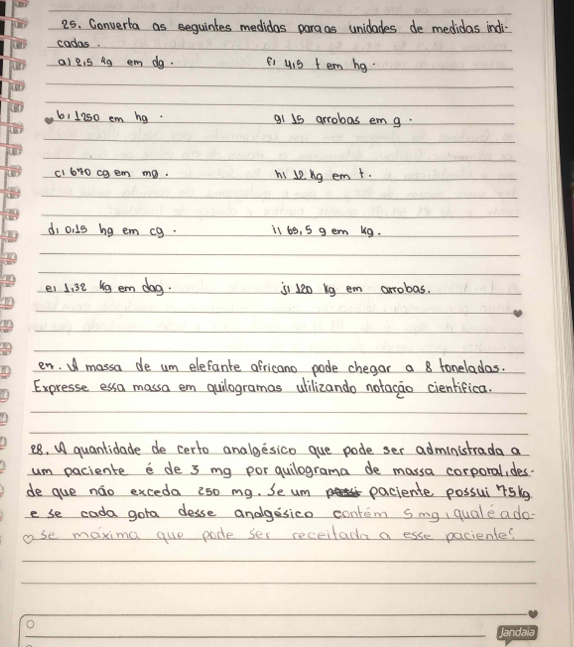 25. Converta as seguintes medidas para as unidades de medidas indi-
cadas.
a) 2,5 kg em dg.
f) 4,5 t em hg.
b) 1250 em hg.
g) 15 arrobas em g.
c) 640 cg em mg.
h) 12 kg em t.
d) 0,15 hg em cg.
i) 65,5 g em kg.
e) 1,32 kg em dag.
j) 120 kg em arrobas.
27. A massa de um elefante africano pode chegar a 8 toneladas.
Expresse essa massa em quilogramas utilizando notação científica.
28. A quantidade de certo analgésico que pode ser administrada a
um paciente é de 3 mg por quilograma de massa corporal, des-
de que não exceda 250 mg. Se um paciente possui 75kg
e se cada gota desse analgésico contém 5 mg, qual é a do-
se máxima que pode ser receitada a esse paciente?
Jandaia